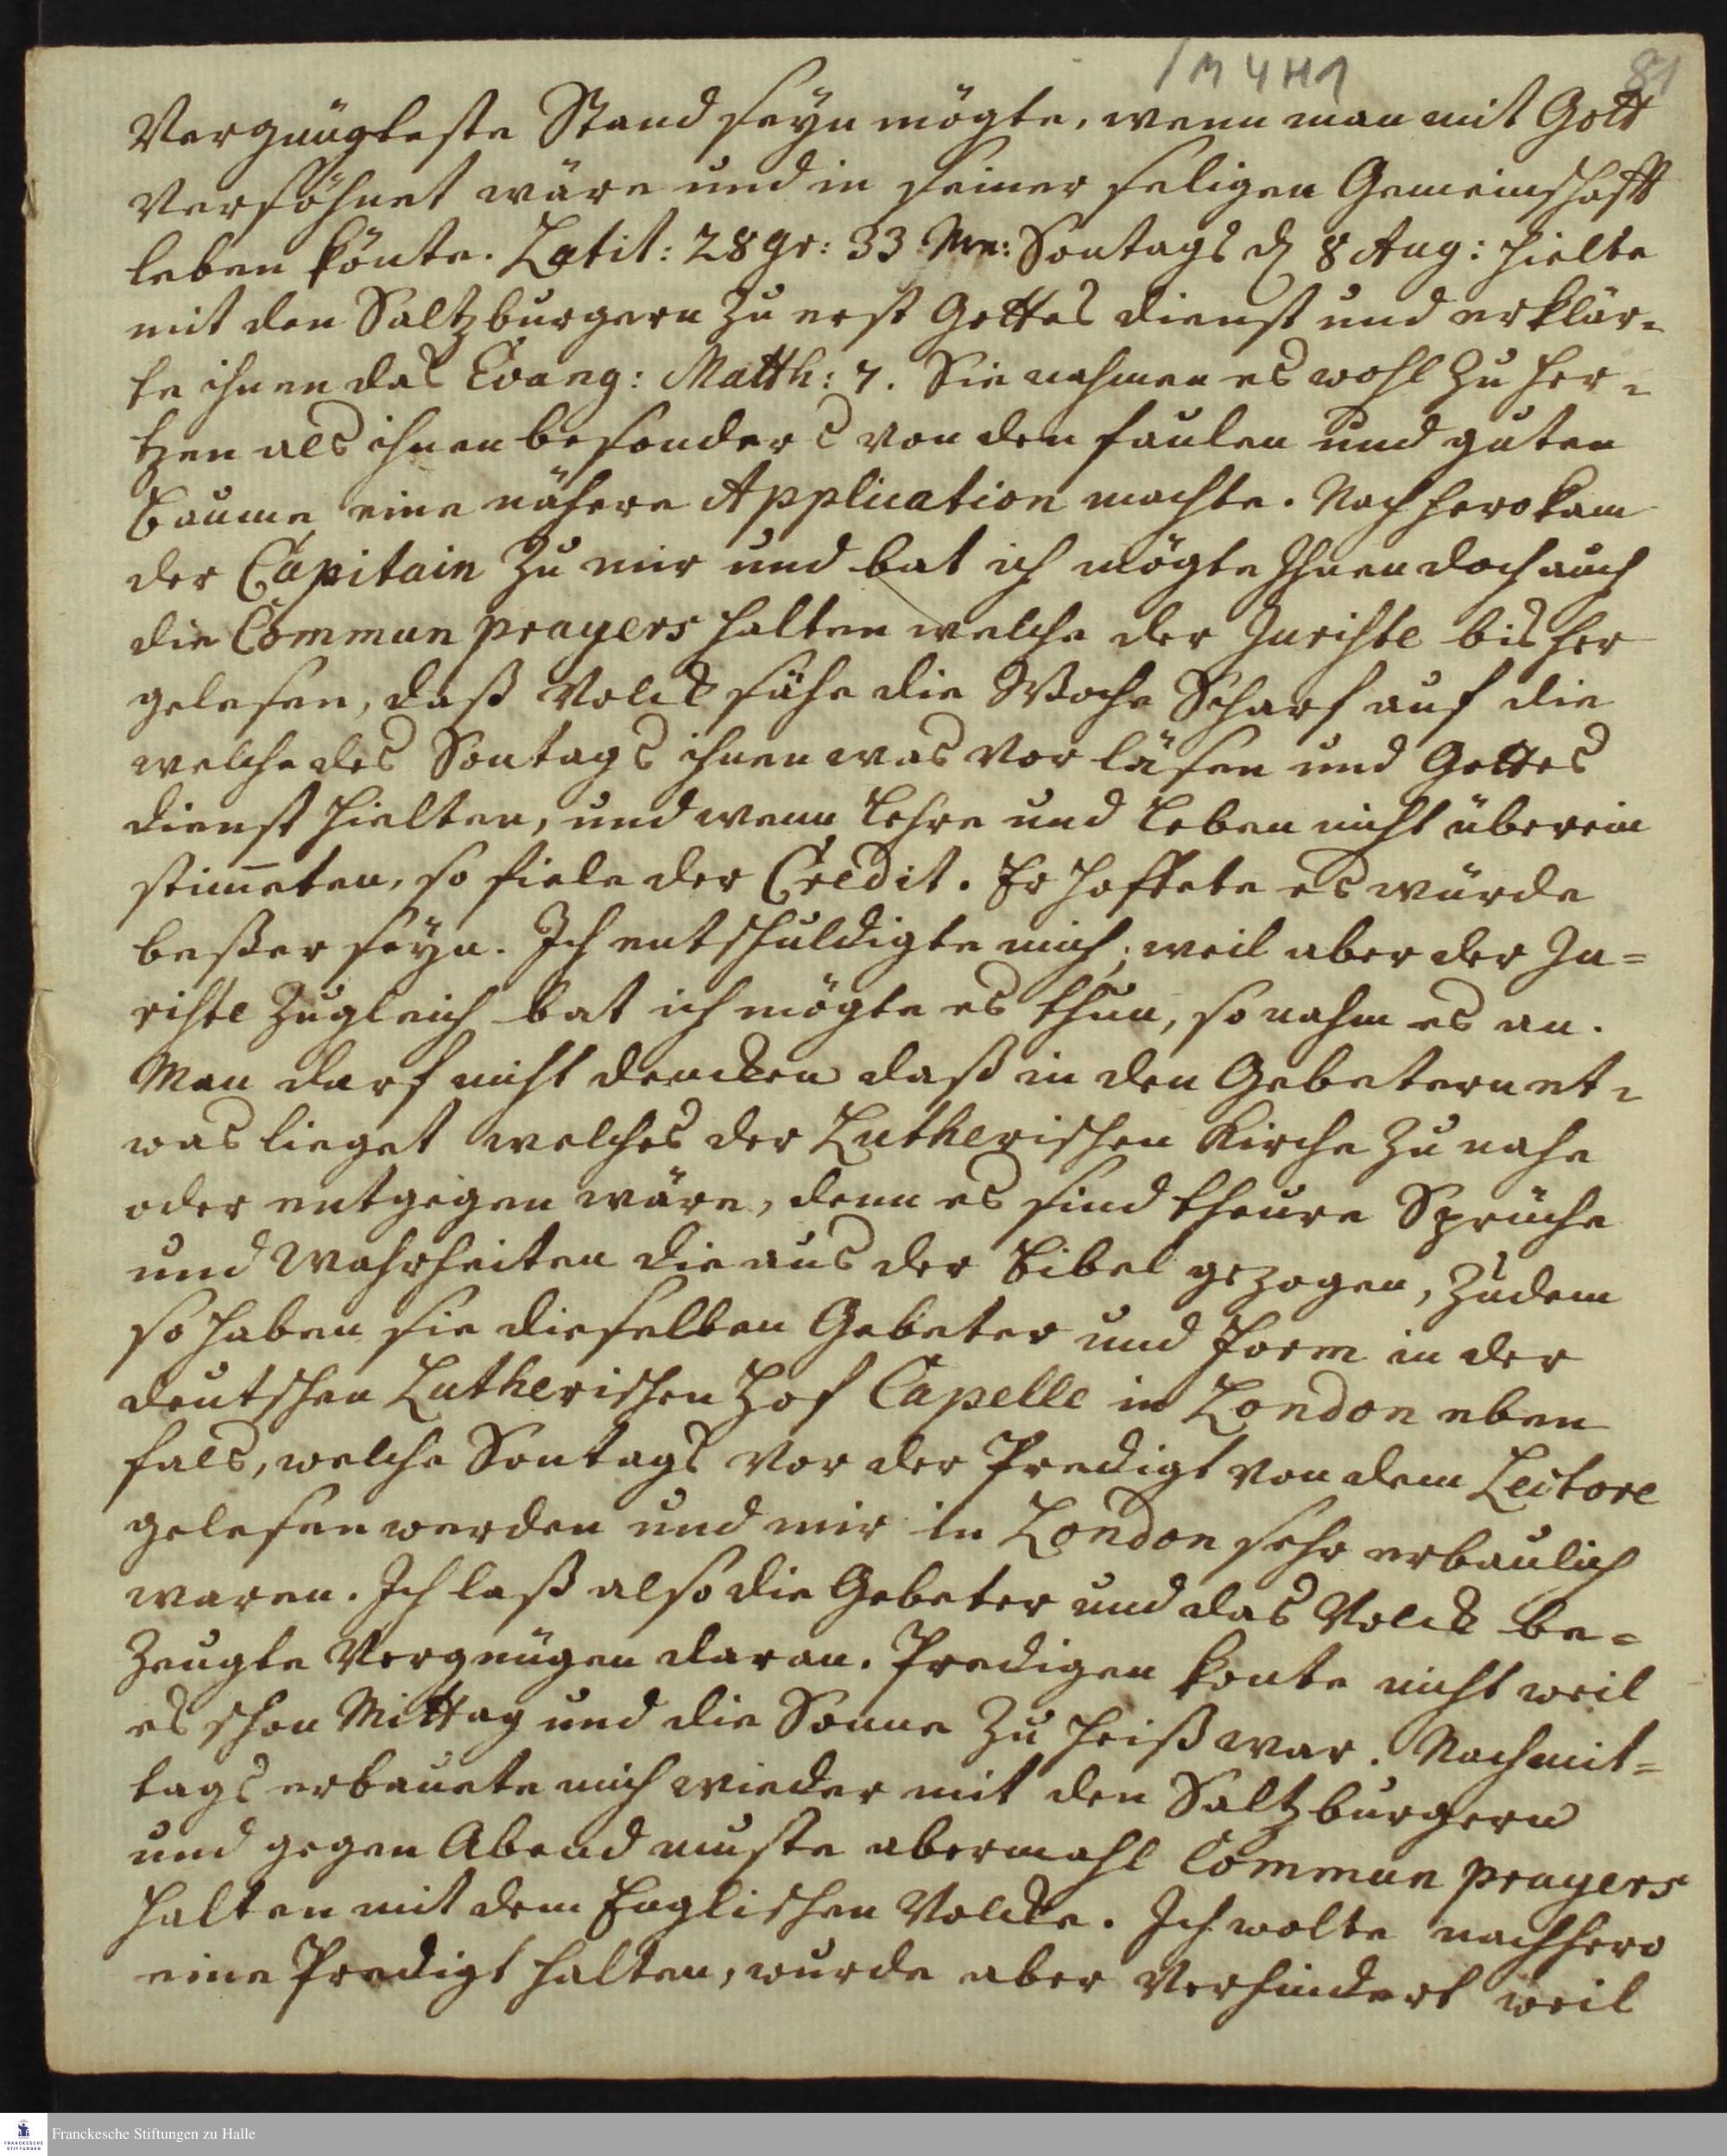 1 M 4 H 1
81
Vergnügteste Stand seyn mögte, wenn man mit Gott
Versöhnet wäre und in seiner seligen Gemeinschafft
leben könte. Latit: 28 gr: 33 Mn: Sontags d 8 Aug: hielte
mit den Saltzburgern zu erst Gottes dienst und erklär-
te ihnen das Evang: Matth: 7. Sie nahmen es wohl zu Her-
tzen als ihnen besonders von den faulen und guten
Baume eine nähere Application machte. Nachhero kam
der Capitain zu mir und bat ich mögte Ihnen doch auch
die Commun prayers halten welche der Juriste bisher
gelesen, daß Volck sähe die Woche Scharf auf die
welche des Sontags ihnen was vor läsen und Gottes
dienst hielten, und wenn Lehre und Leben nicht überein
stimeten, so fiele der Credit. Er hoffete es würde
beßer seyn. Ich entschuldigte mich; weil aber der Ju=
riste zugleich bat ich mögte es thun, so nahm es an.
Man darf nicht dencken daß in den Gebetern et-
was lieget welches der Lutherischen Kirche zu nahe
oder entgegen wäre, denn es sind theure Sprüche
und Wahrheiten die aus der Bibel gezogen, zudem
so haben sie dieselben Gebeter und Form in der
deutschen Lutherischen Hof Capelle in London eben
fals, welche Sontags vor der Predigt von dem Lectore
gelesen werden und mir in London sehr erbaulich
waren. Ich laß also die Gebeter und das Volck be=
zeugte Vergnügen daran. Predigen konte nicht weil
es schon Mittag und die Sonne zu heiß war. Nachmit=
tags erbauete mich wieder mit den Saltzburgern
und gegen Abend muste abermahl Commun prayers
halten mit dem Englischen Volcke. Ich wolte nachhero
eine Predigt halten, wurde aber verhindert weil
Franckesche Stiftungen zu Halle